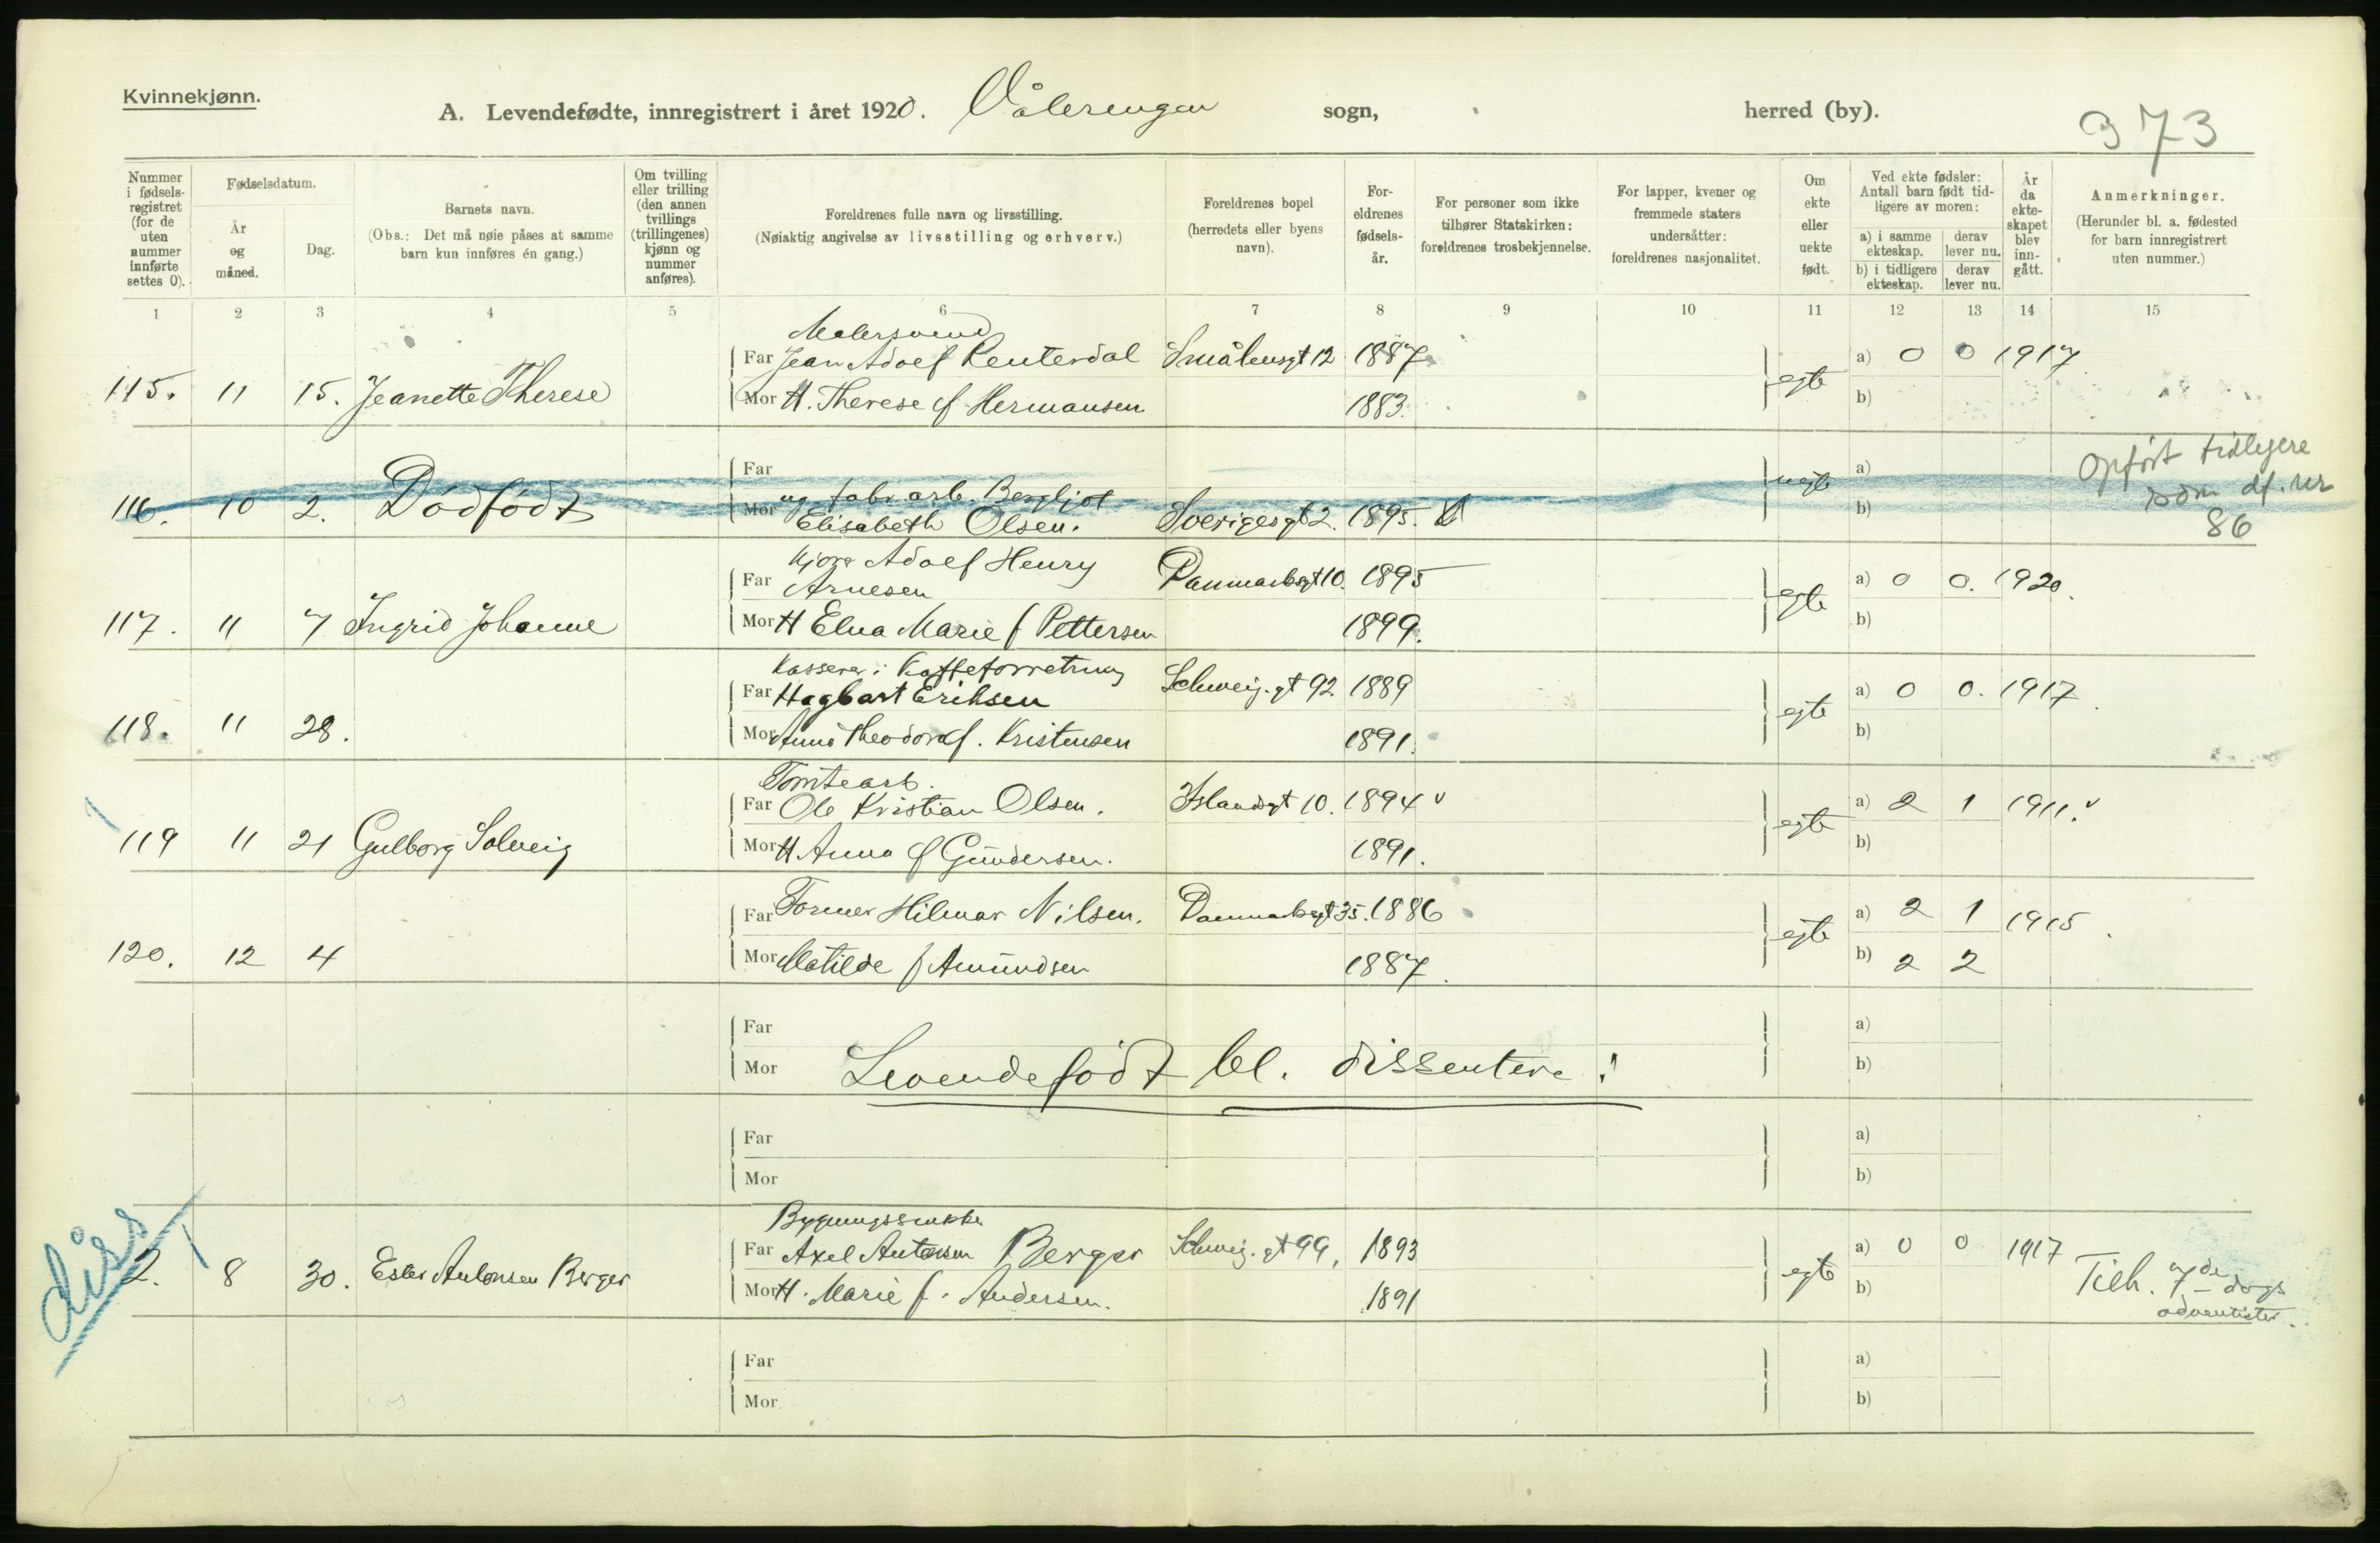 Kvinnekjønn.
A. Levendefødte, innregistrert i året 1920. Vålerengen sogn, herred (by).
373
Nummer i fødselsregistret (for de uten nummer innførte settes 0).
Fødselsdatum.
År og måned.
Dag.
Barnets navn.
(Obs.: Det må nøie påses at samme barn kun innføres én gang.)
Om tvilling eller trilling (den annen tvillings (trillingenes) kjønn og nummer anføres).
Foreldrenes fulle navn og livsstilling.
(Nøiaktig angivelse av livsstilling og erhverv.)
Foreldrenes bopel (herredets eller byens navn).
Foreldrenes fødselsår.
For personer som ikke tilhører Statskirken: foreldrenes trosbekjennelse.
For lapper, kvener og fremmede staters undersåtter: foreldrenes nasjonalitet.
Om ekte eller uekte født.
Ved ekte fødsler: Antall barn født tidligere av moren:
a) i samme ekteskap. derav lever nu.
b) i tidligere ekteskap. derav lever nu.
År da ekteskapet blev inngått.
Anmerkninger.
(Herunder bl. a. fødested for barn innregistrert uten nummer.)
1 2 3 4 5 6 7 8 9 10 11 12 13 14 15
Malersvend
Far Jean Adolf Renterdal Smålensgt 12 1887 a) 0 0 1917
115. 11 15. Jeanette Therese egte
Mor H. Therese f Hermansen 1883. b)
Far a) Opført tidligere
116. 10 2. Dødfødt ug fabr. arb. Bergljot uegte som df. nr
Mor Elisabeth Olsen. Sverigesgt 2. 1895. b) 86
Kjører Adolf Henry
Far Arnesen Danmarksgt 10. 1895 a) 0 0. 1920.
117. 11 7 Ingrid Johanne egte
Mor H Elna Marie f Pettersen 1899. b)
Kasserer i Kaffeforretning
Far Hagbart Eriksen Schweig. gt 92 1889 a) 0 0. 1917
118. 11 28. egte
Mor Anna Theodora f. Kristensen 1891. b)
Tomtearb.
Far Ole Kristian Olsen. Islandsgt 10. 1894 a) 2 1 1911.
119 11 21 Gulborg Solveig egte
Mor H Anna f Gundersen. 1891. b)
Far Former Hilmar Nilsen. Danmarksgt 35. 1886 a) 2 1 1915
120. 12 4 egte
Mor Matilde f Amundsen 1887. b) 2 2
Far a)
Mor Levendefødt bl. dissentere: b)
Far a)
Mor b)
diss
Far Axel Antonsen Berger Schweig. gt 99, 1893 a) 0 0 1917
2. 8 30. Ester Antonsen Berger egte Tilh. 7de dags
Mor H. Marie f. Andersen. 1891 b) adventister.
Far a)
Mor b)